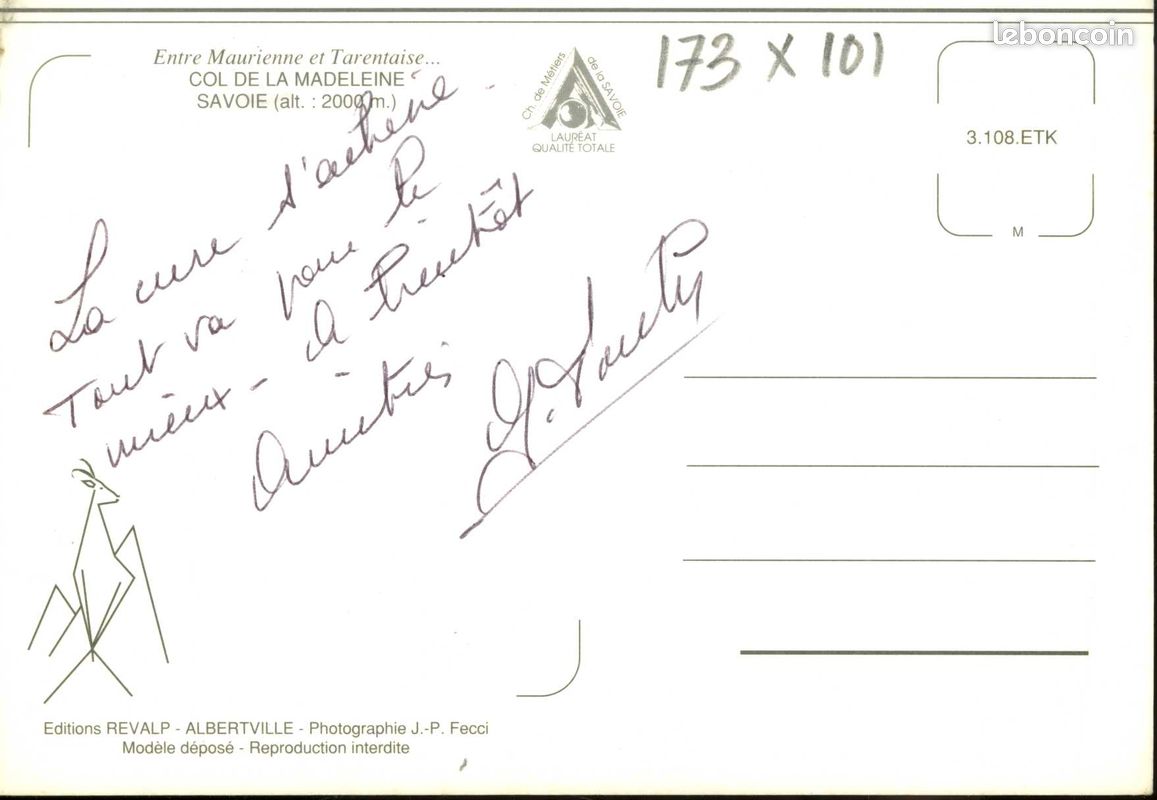 leboncoin
Entre Maurienne et Tarentaise...
COL DE LA MADELEINE
SAVOIE (alt. : 2000 m.)
Ch. de Métiers de la SAVOIE
LAURÉAT
QUALITÉ TOTALE
173 X 101
3.108.ETK
M
La cure s'achève.
Tout va pour le
mieux - à bientôt
Amitiés
Editions REVALP - ALBERTVILLE - Photographie J.-P. Fecci
Modèle déposé - Reproduction interdite